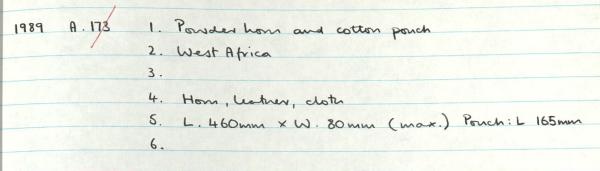 1989 A.173 1. Powder horn and cotton pouch
2. West Africa
3.
4. Horn, leather, cloth
5. L. 460mm x W. 80mm (max.) Pouch: L 165mm
6.